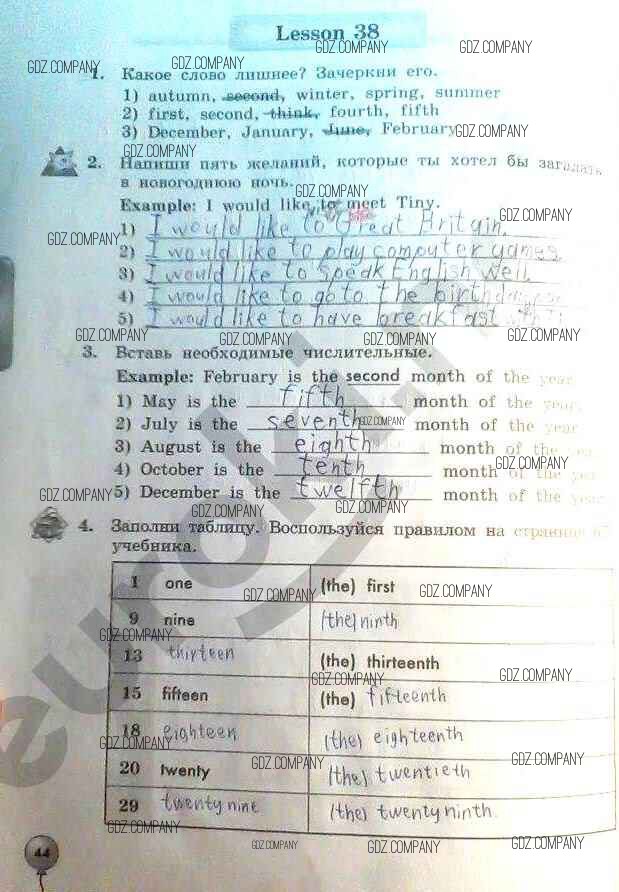 Lesson 38
GDZ.COMPANY GDZ.COMPANY
GDZ.COMPANY GDZ.COMPANY
1. Какое слово лишнее? Зачеркни его.
1) autumn, second, winter, spring, summer
2) first, second, think, fourth, fifth
3) December, January, June, February GDZ.COMPANY
GDZ.COMPANY
2. Напиши пять желаний, которые ты хотел бы загадать
в новогоднюю ночь.
GDZ.COMPANY
Example: I would like to meet Tiny.
GDZ.COMPANY
1) I would like to Great Britain.
GDZ.COMPANY
2) I would like to play computer games
3) I would like to speak English well.
GDZ.COMPANY
4) I would like to go to the
5) I would like to have breakfast with
GDZ.COMPANY GDZ.COMPANY GDZ.COMPANY GDZ.COMPANY
3. Вставь необходимые числительные.
Example: February is the second month of the year
1) May is the fifth month of the year.
2) July is the seventh GDZ.COMPANY month of the year
3) August is the eighth month of the
4) October is the tenth month of the
GDZ.COMPANY
5) December is the twelfth month of the year
GDZ.COMPANY
GDZ.COMPANY GDZ.COMPANY
4. Заполни таблицу. Воспользуйся правилом на странице
учебника.
1 one (the) first
GDZ.COMPANY GDZ.COMPANY
9 nine (the) ninth
GDZ.COMPANY
13 thirteen (the) thirteenth
GDZ.COMPANY GDZ.COMPANY
15 fifteen (the) fifteenth
18 eighteen (the) eighteenth
GDZ.COMPANY
GDZ.COMPANY GDZ.COMPANY
20 twenty (the) twentieth
29 twenty nine (the) twenty ninth
GDZ.COMPANY
GDZ.COMPANY GDZ.COMPANY GDZ.COMPANY
44
euroki